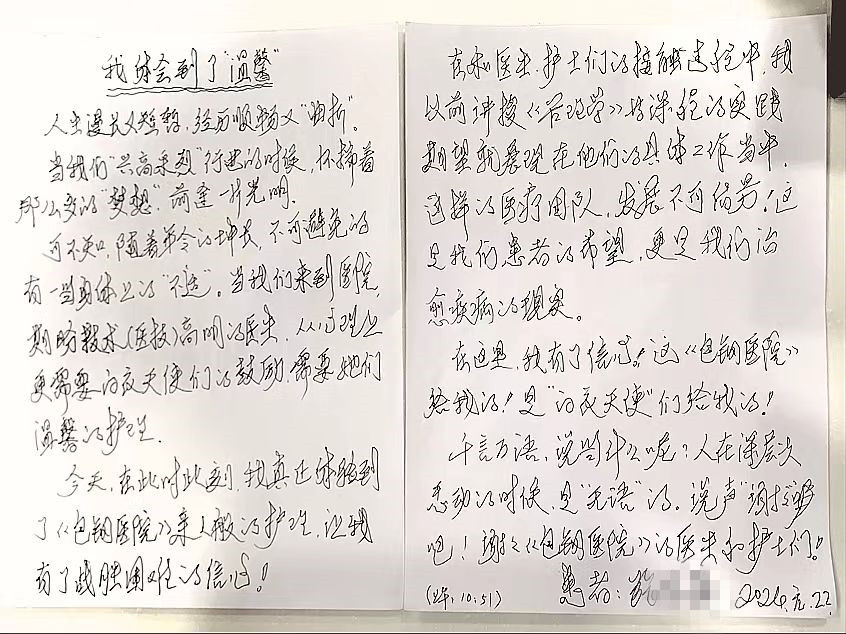 我体会到了"温馨"
人生漫长又短暂，经历顺畅又"曲折"。
当我们"兴高采烈"行进的时候，怀揣着
那么多的"梦想"，前途一片光明。
可不知，随着年令的增长，不可避免的
有一些身体上的"不适"。当我们来到医院，
期盼技术（医技）高明的医生，从心理上
更需要白衣天使们的鼓励，需要她们
温馨的护理。
今天，在此时此刻，我真正体验到
了《包钢医院》亲人般的护理，让我
有了战胜困难的信心！
在和医生、护士们的接触过程中，我
以前讲授《管理学》等课程的实践
期望就展现在他们的具体工作当中，
这样的医疗团队，发展不可估量！这
是我们患者的希望，更是我们治
愈疾病的现象。
在这里，我有了信心！这《包钢医院》
给我的！是"白衣天使"们给我的！
千言万语，说些什么呢？人在深层次
感动的时候，是"无语"的。说声"谢谢"
吧！谢谢《包钢医院》的医生和护士们！
(上午，10:51) 患者： 2024.元.22